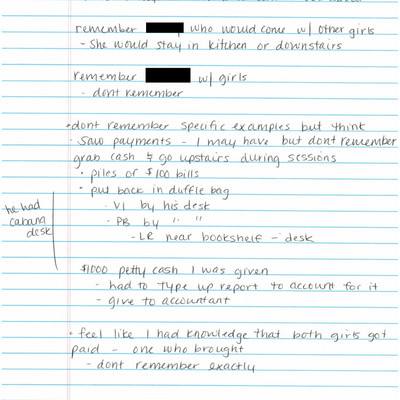 remember who would come w/ other girls
- She would stay in kitchen or downstairs
remember w/ girls
- dont remember
• dont remember specific examples but think
• Saw payments - I may have but dont remember
grab cash & go upstairs during sessions
• piles of $100 bills
• put back in duffle bag
he had
cabana
desk
- VI by his desk
- PB by " "
- LR near bookshelf - desk
$1000 petty cash I was given
- had to type up report to account for it
- give to accountant
• feel like I had knowledge that both girls got
paid - one who brought
- dont remember exactly